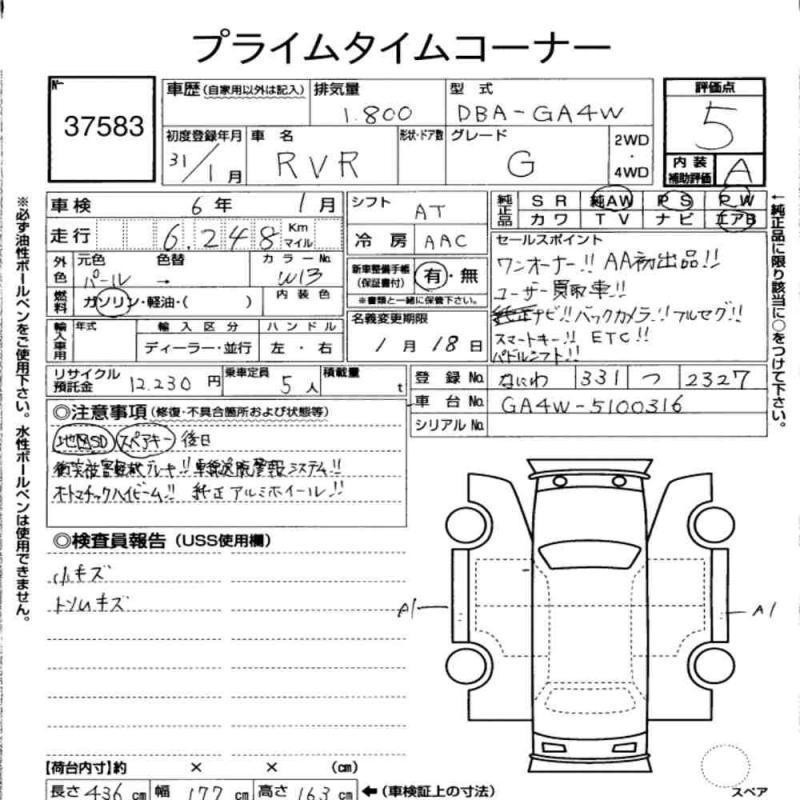 プライムタイムコーナー
No 37583
車歴 (自家用以外は記入) 排気量 1.800 型式 DBA-GA4W
評価点 5
初度登録年月 31/1月 車名 RVR 形状・ドア数 グレード G 2WD・4WD
内装補助評価 A
車検 6年 1月 シフト AT
純正品 SR 純AW PS PW
カワ TV ナビ エアB
走行 6.248 Km マイル 冷房 AAC
外色 元色 パール 色替 → カラーNo. W13
新車整備手帳(保証書付) 有・無
※書類と一緒に保管下さい。
燃料 ガソリン・軽油・( ) 内装色
名義変更期限 1月18日
セールスポイント
ワンオーナー!! AA初出品!!
ユーザー買取車!!
純正ナビ!! バックカメラ!! フルセグ!!
スマートキー!! ETC!!
パドルシフト!!
輸入車用 年式 輸入区分 ハンドル
ディーラー・並行 左・右
リサイクル預託金 12.230円 乗車定員 5人 積載量 t
登録No. なにわ 331 つ 2327
車台No. GA4W-5100316
シリアルNo.
◎注意事項(修復・不具合箇所および状態等)
地図SD スペアキー 後日
衝突被害軽減ブレーキ!! 車線逸脱警報システム!!
オートマチックハイビーム!! 純正アルミホイール!!
◎検査員報告 (USS使用欄)
小キズ
トランクキズ
A1 A1
【荷台内寸】約 × × (cm)
長さ 436 cm 幅 177 cm 高さ 163 cm ←(車検証上の寸法)
スペア
※必ず油性ボールペンをご使用下さい。水性ボールペンは使用できません。
←純正品に限り該当に○をつけて下さい。